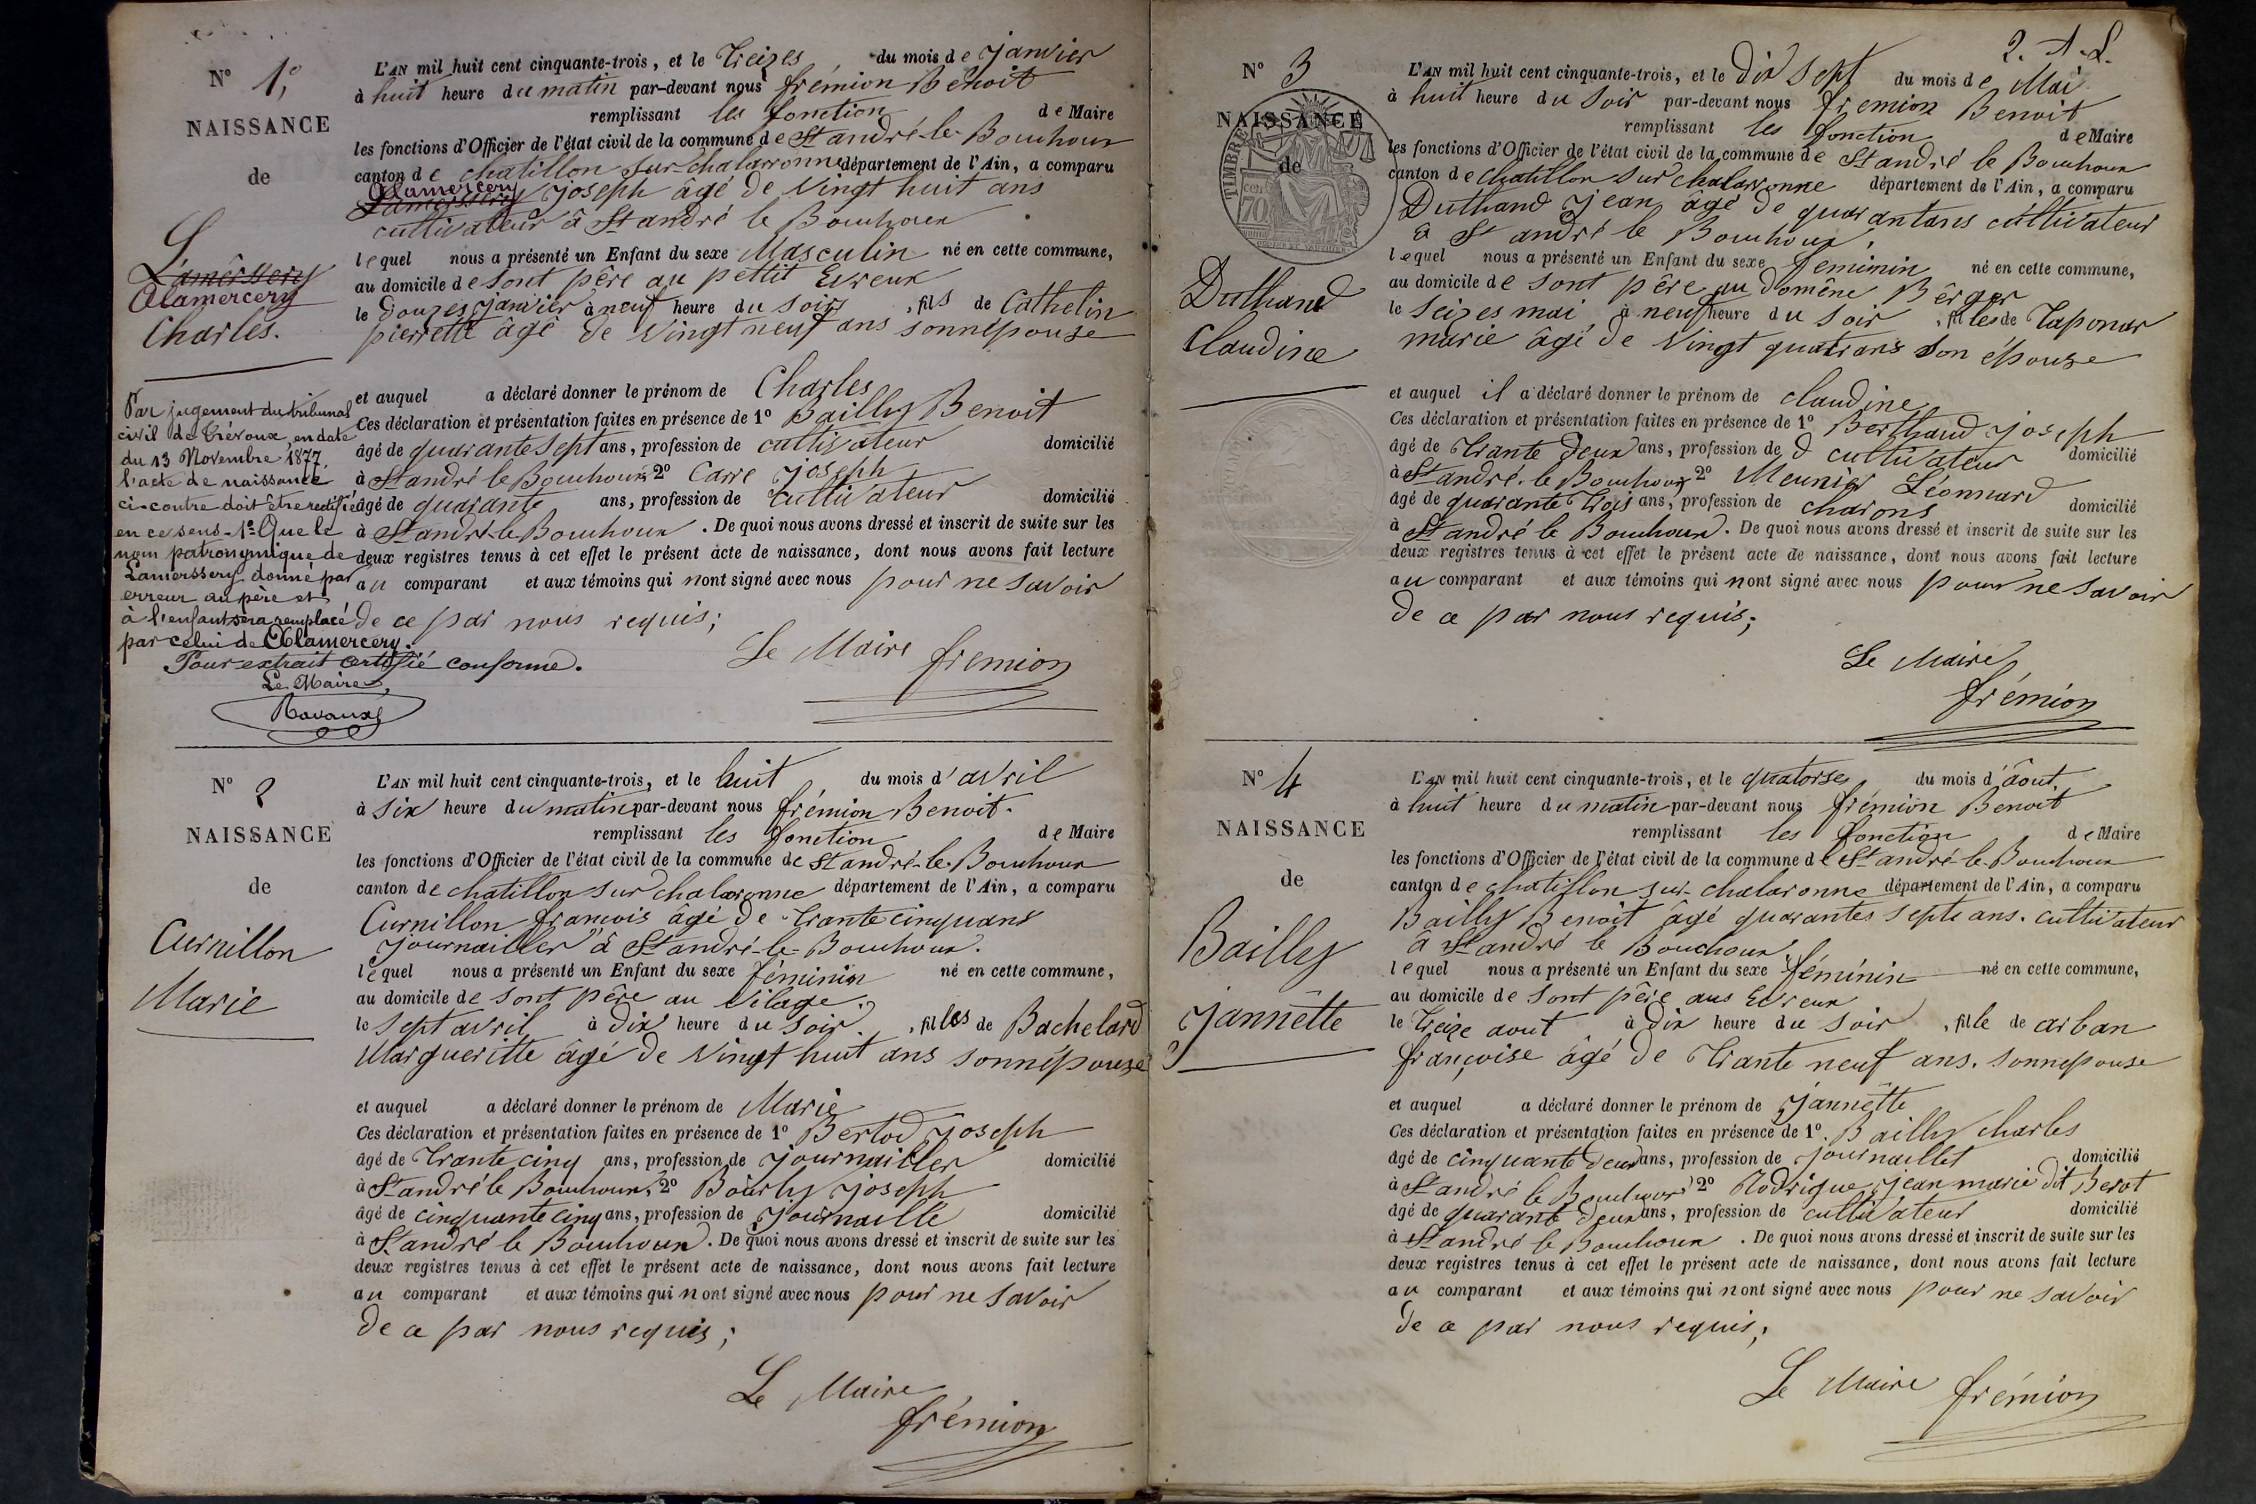 N° 1,
NAISSANCE
de
L
Lamerssery
Alamercery
Charles.
Par jugement du tribunal
civil de Trévoux, en date
du 13 Novembre 1877,
l'acte de naissance
ci-contre doit être rectifié
en ce sens - 1° Que le
nom patronymique de
Lamerssery donné par
erreur au père et
à l'enfant sera remplacé
par celui de Alamercery.
Pour extrait certifié conforme.
Le Maire,
Ravaux
L'AN mil huit cent cinquante-trois, et le Treizes du mois de janvier
à huit heure du matin par-devant nous frémion Benoit
remplissant les fonction de Maire
les fonctions d'Officier de l'état civil de la commune de St andré-le-Bouchoux
canton de chatillon sur-chalaronne département de l'Ain, a comparu
Alamercery
Lamerssery joseph âgé de vingt huit ans
cultivateur à St andré le Bouchoux
lequel nous a présenté un Enfant du sexe Masculin né en cette commune,
au domicile de sont père au pettit Evreux
le douzes janvier à neuf heure du soir, fils de Cathelin
pierrette âgé de vingt neuf ans sonnépouse
et auquel a déclaré donner le prénom de Charles
Ces déclaration et présentation faites en présence de 1° Bailly Benoit
âgé de quarante sept ans, profession de cultivateur domicilié
à St andré le Bouchoux 2° Carre joseph
âgé de quarante ans, profession de cultivateur domicilié
à St andré-le-Bouchoux. De quoi nous avons dressé et inscrit de suite sur les
deux registres tenus à cet effet le présent acte de naissance, dont nous avons fait lecture
au comparant et aux témoins qui nont signé avec nous pour ne savoir
de ce par nous requis;
Le Maire frémion
N° 2
NAISSANCE
de
Curnillon
Marie
L'AN mil huit cent cinquante-trois, et le huit du mois d'avril
à six heure du matin par-devant nous frémion Benoit.
remplissant les fonction de Maire
les fonctions d'Officier de l'état civil de la commune de St andré-le-Bouchoux
canton de chatillon sur chalaronne département de l'Ain, a comparu
Curnillon françois âgé de trante cinquans
journailler à St andré-le-Bouchoux.
lequel nous a présenté un Enfant du sexe féminin né en cette commune,
au domicile de sont père au vilage.
le sept avril à dix heure du soir, filles de Bachelard
Margueritte âgé de vingt huit ans sonnépouse
et auquel a déclaré donner le prénom de Marie
Ces déclaration et présentation faites en présence de 1° Bertod joseph
âgé de trante cinq ans, profession de journailler domicilié
à St andré le Bouchoux, 2° Bourly joseph
âgé de cinquante cinq ans, profession de journaille domicilié
à St andré le Bouchoux. De quoi nous avons dressé et inscrit de suite sur les
deux registres tenus à cet effet le présent acte de naissance, dont nous avons fait lecture
au comparant et aux témoins qui nont signé avec nous pour ne savoir
de ce par nous requis;
Le Maire
frémion
2.
N° 3
NAISSANCE
de
TIMBRE
70
Duthand
Claudine
L'AN mil huit cent cinquante-trois, et le dix sept du mois de Mai
à huit heure du soir par-devant nous fremion Benoit
remplissant les fonction de Maire
les fonctions d'Officier de l'état civil de la commune de St andré le Bouchoux
canton de chatillon sur chalaronne département de l'Ain, a comparu
Duthand jean âgé de quarantans cultivateur
à St andré le Bouchoux,
lequel nous a présenté un Enfant du sexe feminin né en cette commune,
au domicile de sont père au domêne Bêrger
le seizes mai à neuf heure du soir, filles de Taponar
marie âgé de vingt quatrans son épouse
et auquel il a déclaré donner le prénom de claudine
Ces déclaration et présentation faites en présence de 1° Berthaud joseph
âgé de trante deux ans, profession de d cultivateur domicilié
à St andré le Bouchoux 2° Meunier Léonnard
âgé de quarante trois ans, profession de charons domicilié
à St andré le Bouchoux. De quoi nous avons dressé et inscrit de suite sur les
deux registres tenus à cet effet le présent acte de naissance, dont nous avons fait lecture
au comparant et aux témoins qui nont signé avec nous pour ne savoir
de ce par nous requis;
Le Maire
frémion
N° 4
NAISSANCE
de
Bailly
jannêtte
L'AN mil huit cent cinquante-trois, et le quatorse du mois d'âout,
à huit heure du matin par-devant nous frémion Benoit
remplissant les fonction de Maire
les fonctions d'Officier de l'état civil de la commune de St andré-le-Bouchoux
canton de chatillon sur-chalaronne département de l'Ain, a comparu
Bailly Benoit âgé quarantes septs ans. cultivateur
à St andré le Bouchoux
lequel nous a présenté un Enfant du sexe féminin né en cette commune,
au domicile de sont père aus Evreux
le treize aout à dix heure du soir, fille de arban
françoise âgé de trante neuf ans. sonnepouse
et auquel a déclaré donner le prénom de jannêtte
Ces déclaration et présentation faites en présence de 1°. Bailly charles
âgé de cinquante deux ans, profession de journaillet domicilié
à St andré le Bouchoux 2° Rodrigue jean marie dit Berot
âgé de quarante deux ans, profession de cultivateur domicilié
à St andré le Bouchoux. De quoi nous avons dressé et inscrit de suite sur les
deux registres tenus à cet effet le présent acte de naissance, dont nous avons fait lecture
au comparant et aux témoins qui nont signé avec nous pour ne savoir
de ce par nous requis;
Le Maire frémion